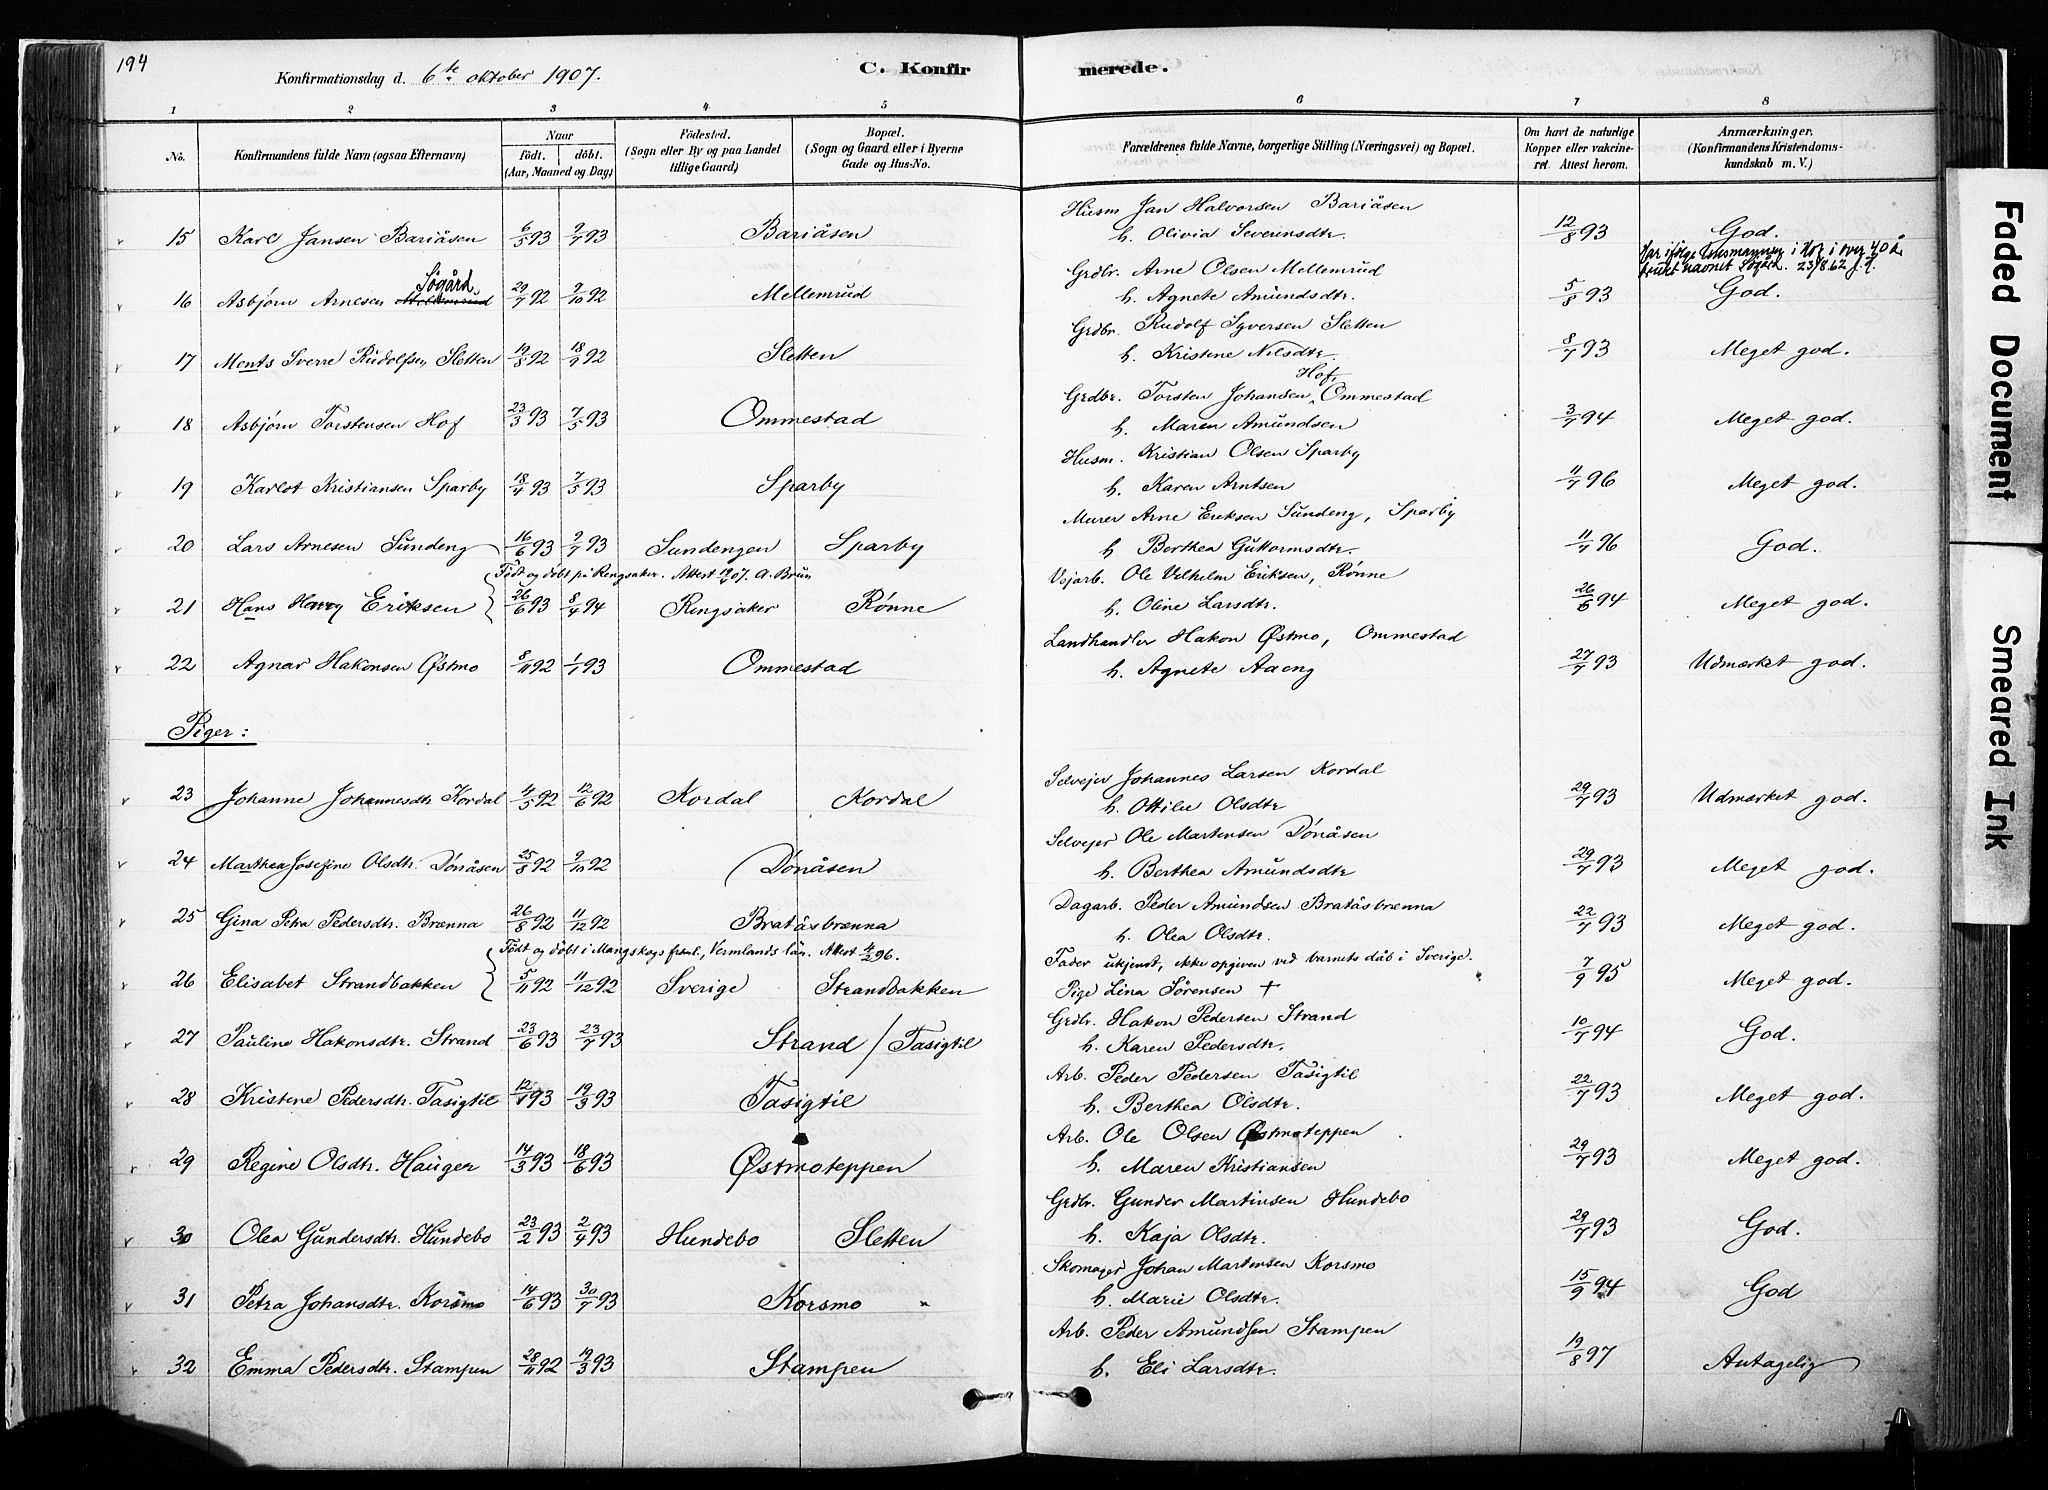 194
Konfirmationsdag d. 6te oktober 1907.
C. Konfirmerede.
1 2 3 4 5 6 7 8
No. Konfirmandens fulde Navn (ogsaa Efternavn) Naar födt. döbt. (Aar, Maaned og Dag) Födested. (Sogn eller By og paa Landet tillige Gaard) Bopæl. (Sogn og Gaard eller i Byerne Gade og Hus-No. Forældrenes fulde Navne, borgerlige Stilling (Næringsvei) og Bopæl. Om havt de naturlige Kopper eller vakcineret. Attest herom. Anmærkninger. (Konfirmandens Kristendomskundskab m. V.)
Husm Jan Halvorsen Bariåsen
15 Karl Jansen Bariåsen 6/5 93 9/7 93 Bariåsen h. Olivia Severinsdtr. 12/8 93 God.
Har ifölge lensmannen i Hof i over 40 år
brukt navnet Søgård. 23/8.62
Søgård Grdbr. Arne Olsen Mellemrud
16 Asbjørn Arnesen Mellemrud 29/7 92 9/10 92 Mellemrud h. Agnete Amundsdtr. 5/8 93 God.
Grdbr. Rudolf Syversen Sletten
17 Monts Sverre Rudolfsen Sletten 19/8 92 18/9 92 Sletten h. Kristine Nilsdtr. 8/7 93 Meget god.
Grdbr. Torsten Johansen Hof, Ommestad
18 Asbjørn Torstensen Hof 23/3 93 7/5 93 Ommestad h. Maren Amundsen 3/7 94 Meget god.
Husm. Kristian Olsen Sparby
19 Karlot Kristiansen Sparby 18/4 93 7/5 93 Sparby h. Karen Arntsen 11/7 96 Meget god.
Murer Arne Eriksen Sundeng, Sparby
20 Lars Arnesen Sundeng 16/6 93 9/7 93 Sundengen Sparby h Berthea Guttormsdtr. 11/7 96 God.
Födt og döbt på Ringsaker. Attest 19/7 07. A. Brun Vejarb. Ole Vilhelm Eriksen, Rønne
21 Hans Harry Eriksen 26/6 93 8/4 94 Ringsaker Rønne h. Oline Larsdtr. 26/6 94 Meget god.
Landhandler Hakon Østmo, Ommestad
22 Agnar Hakonsen Østmo 8/11 92 1/1 93 Ommestad h. Agnete Aaeng 27/7 93 Udmærket god.
Piger:
Selvejer Johannes Larsen Kordal
23 Johanne Johannesdtr Kordal 4/5 92 12/6 92 Kordal Kordal h. Ottilie Olsdtr 29/7 93 Udmærket god.
Selvejer Ole Martinsen Dönåsen
24 Marthea Josefine Olsdtr. Dönåsen 25/8 92 9/10 92 Dönåsen h. Berthea Amundsdtr 29/7 93 Meget god.
Dagarb. Peder Amundsen Bratåsbrænna
25 Gina Petra Pedersdtr. Brænna 26/8 92 11/12 92 Bratåsbrænna h. Olea Olsdtr. 22/7 93 Meget god.
Födt og döbt i Mangskogs fsml., Vermlands län. Attest 4/2 96. Fader ukjendt, ikke opgiven ved barnets dåb i Sverige.
26 Elisabet Strandbakken 5/11 92 11/12 92 Sverige Strandbakken Pige Lina Sørensen + 7/9 95 Meget god.
Grdbr. Hakon Pedersen Strand
27 Pauline Hakonsdtr. Strand 23/6 93 23/7 93 Strand / Tasigtil h. Karen Pedersdtr. 10/7 94 God.
Arb. Peder Pedersen Tasigtil
28 Kristine Pedersdtr. Tasigtil 12/1 93 19/3 93 Tasigtil h. Berthea Olsdtr. 22/7 93 Meget god.
Arb. Ole Olsen Østmoteppen
29 Regine Olsdtr. Hauger 14/3 93 18/6 93 Østmoteppen h. Maren Kristiansen 29/7 93 Meget god.
Grdbr. Gunder Martinsen Hundebo
30 Olea Gundersdtr. Hundebo 23/2 93 2/4 93 Hundebo Sletten h. Kaja Olsdtr. 29/7 93 God.
Skomager Johan Martinsen Korsmo
31 Petra Johansdtr. Korsmo 14/6 93 30/7 93 Korsmo h. Marie Olsdtr. 15/9 94 God
Arb. Peder Amundsen Stampen
32 Emma Pedersdtr. Stampen 28/11 92 19/3 93 Stampen h. Eli Larsdtr. 19/8 97 Antagelig
Faded Document
Smeared Ink